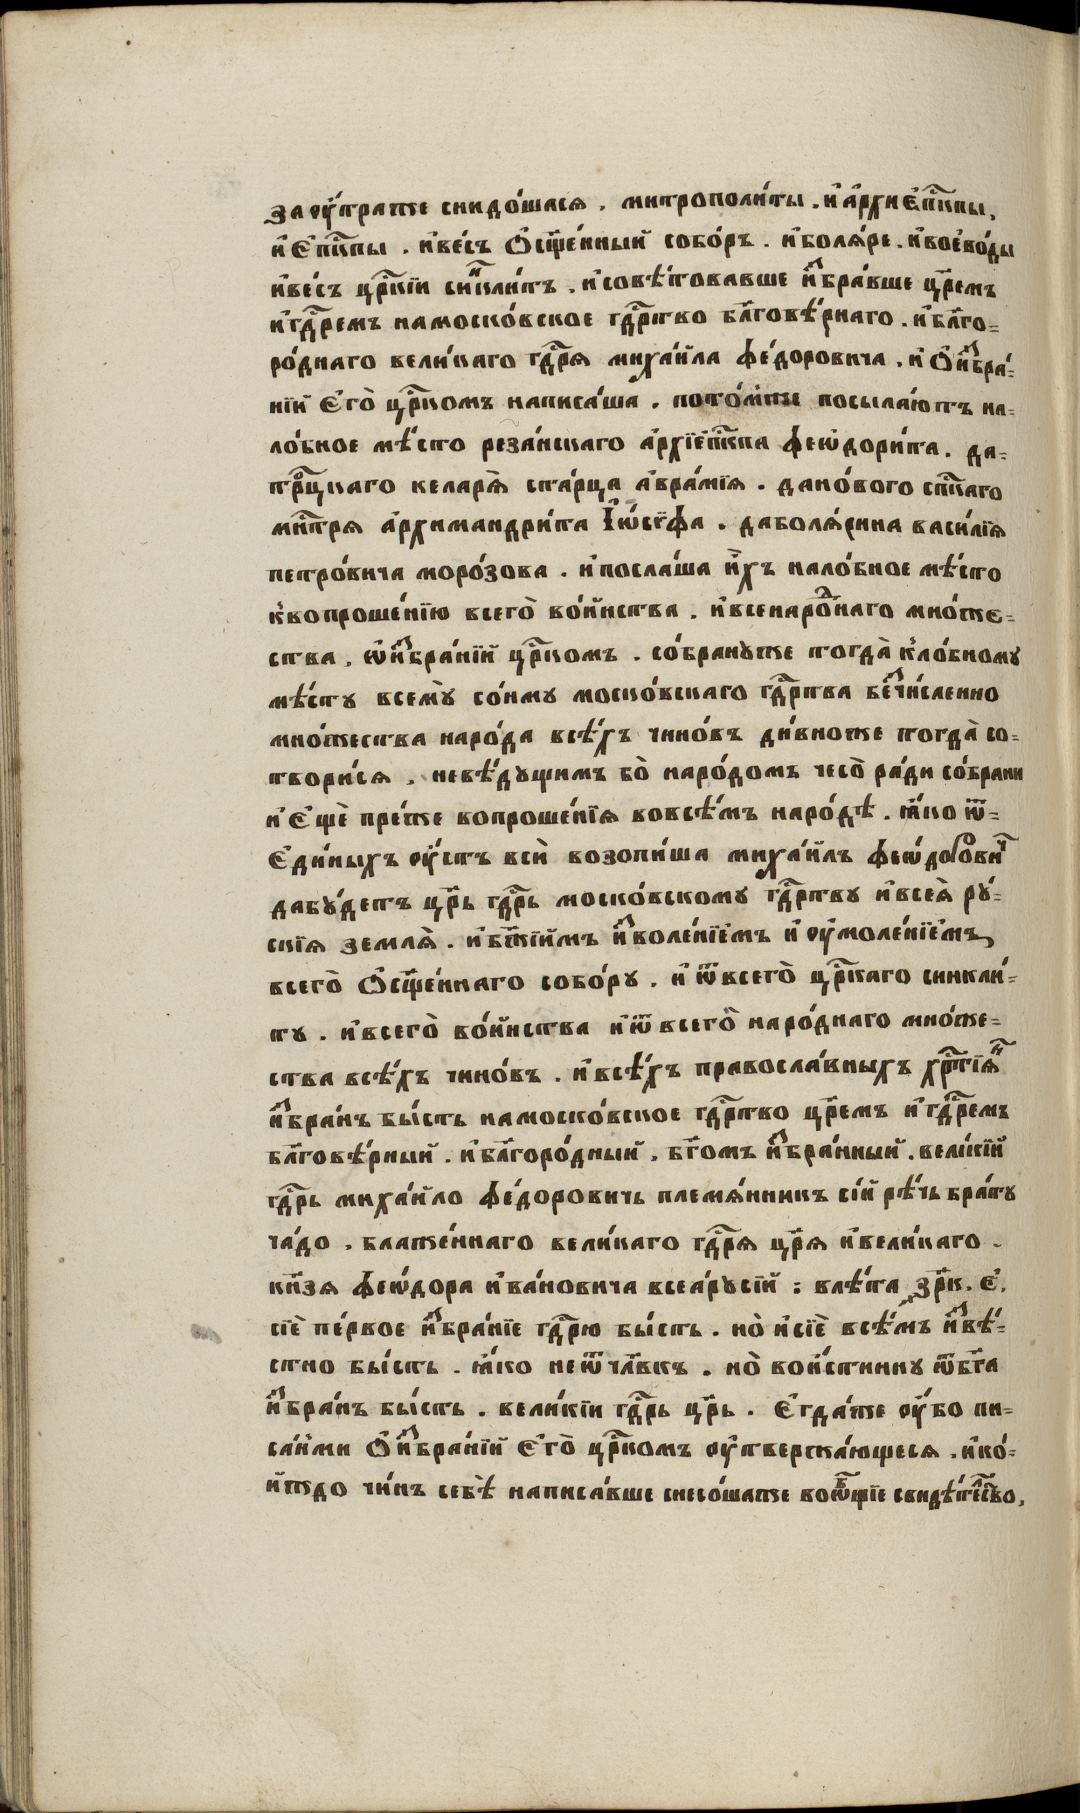 заꙋ́траже снидо́шася . митрополи́ты . и҆ а҆рхиЕ҆пⷭ҇кпы ,
и҆ Е҆пⷭ҇кпы . и҆ве́съ Ѻ҆сщ҃е́нный собо́ръ . и҆боля́ре . и҆воево́ды
и҆ве́съ црⷭ҇кїи си́нⷦ҇клитъ . и҆совѣ́товавше и҆ꙁбра́вше цр҃емъ
и҆гдⷭ҇ремъ намоско́вское гдⷭ҇рство бл҃говѣ́рнаго . и҆бл҃го-
ро́днаго вели́каго гдⷭ҇ря миха́йла фе́доровича . и҆ Ѻ҆и҆ꙁбра́-
нїй Е҆го̀ црⷭ҇комъ написа́ша . пото́мже посыла́ютъ на-
ло́бное мѣ́сто реза́нскаго а҆рхїе҆пⷭ҇кпа феѡ҆дори́та . да-
трⷪ҇цкаго келаря̀ ста́рца а҆вра́мїя . дано́вого спⷭ҇каго
мнⷭ҇тря а҆рхимандри́та І҆ѡ́сїфа . даболя́рина васи́лїя
петро́вича моро́зова . и҆посла́ша и҆̀хъ нало́бное мѣ́сто
к̾вопроше́нїю всего̀ во́йнства . и҆всенаро́дⷣнаго мно́же-
ства . ѡ҆и҆ꙁбра́нїй црⷭ҇комъ . со́бранꙋже тогда̀ к̾ло́бномꙋ
мѣ́стꙋ всемꙋ̀ со́нмꙋ моско́вскаго гдⷭ҇рства беꙁчи́сленно
мно́жества наро́да всѣ́хъ чино́въ ди́вноже тогда̀ со-
твори́ся . невѣ́дꙋщимъ бо̀ наро́домъ чесо̀ ра́ди со́брани
и҆ Е҆щѐ пре́же вопроше́нїя вовсѣ́мъ наро́дѣ . ꙗ҆́ко ѿ-
Е҆ди́ныхъ ꙋ҆́стъ всѝ возопи́ша миха́йлъ феѡ́дорови́ч
дабꙋ́детъ цр҃ь гдⷭ҇рь моско́вскомꙋ гдⷭ҇рствꙋ и҆всея̀ рꙋ́-
скїя земля̀ . и҆бж҃їи́мъ и҆ꙁволе́нїемъ и҆ ꙋ҆моле́нїемъ
всего̀ Ѻ҆сщ҃е́ннаго собо́рꙋ . и҆ ѿвсего̀ црⷭ҇каго синкли́-
тꙋ . и҆всего̀ во́йнства и҆ѿвсего̀ наро́днаго мно́же-
ства всѣ́хъ чино́въ . и҆всѣ́хъ правосла́вныхъ хрⷭ҇тїя́нⷩ҇
и҆ꙁбра́нъ бы́сть намоско́вское гдⷭ҇рство цр҃емъ и҆гдⷭ҇ремъ
бл҃говѣ́рный . и҆бл҃горо́дный . бг҃омъ и҆ꙁбра́нный . вели́кїй
гдⷭ҇рь миха́йло фе́доровичь племя́нникъ сі́й рѣ́чь бра́тꙋ
ча́до . блаже́ннаго вели́каго гдⷭ҇ря цр҃я и҆вели́каго .
кн҃зя феѡ́дора и҆ва́новича всеарꙋсїй : влѣ́та ҂зр҃к . Е҃ .
сїѐ пе́рвое и҆ꙁбра́нїе гдⷭ҇рю бы́сть . но̀ и҆сїѐ всѣ́мъ и҆ꙁвѣ́-
стно бы́сть . ꙗ҆́ко неѿчл҃вкъ . но̀ вои́стиннꙋ ѿбг҃а
и҆ꙁбра́нъ бы́сть . вели́кїи гдⷭ҇рь цр҃ь . Е҆гда́же ꙋ҆́бо пи-
са́нми Ѻ҆и҆ꙁбра́нїй Е҆го̀ црⷭ҇комъ ꙋ҆твержа́ющеся . и҆ко́-
йждо чи́нъ себѣ̀ написа́вше снесо́шаже воѡ҆́бⷠ҇щїе свидѣ́телⷭ҇ьство ,